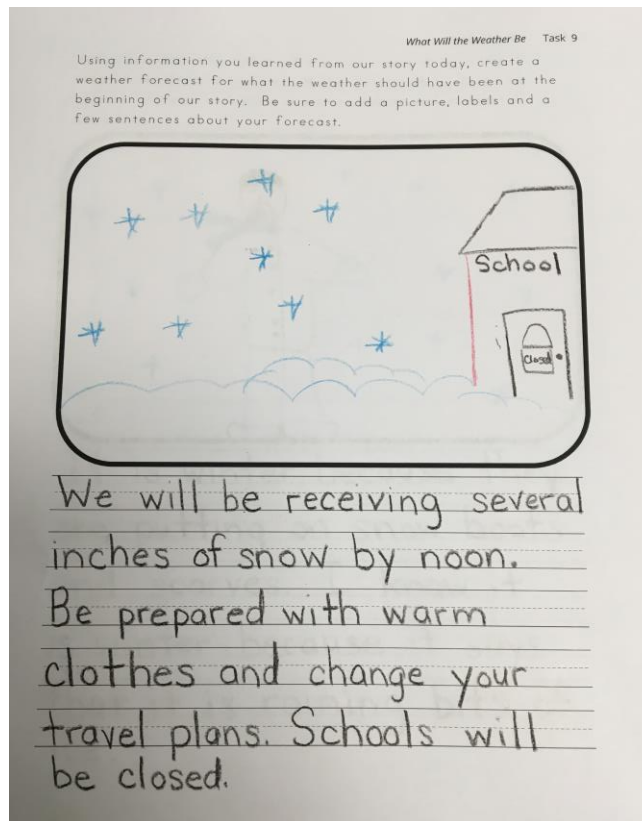 What Will the Weather Be Task 9
Using information you learned from our story today, create a
weather forecast for what the weather should have been at the
beginning of our story. Be sure to add a picture, labels and a
few sentences about your forecast.
School
Closed
We will be receiving several
inches of snow by noon.
Be prepared with warm
clothes and change your
travel plans. Schools will
be closed.